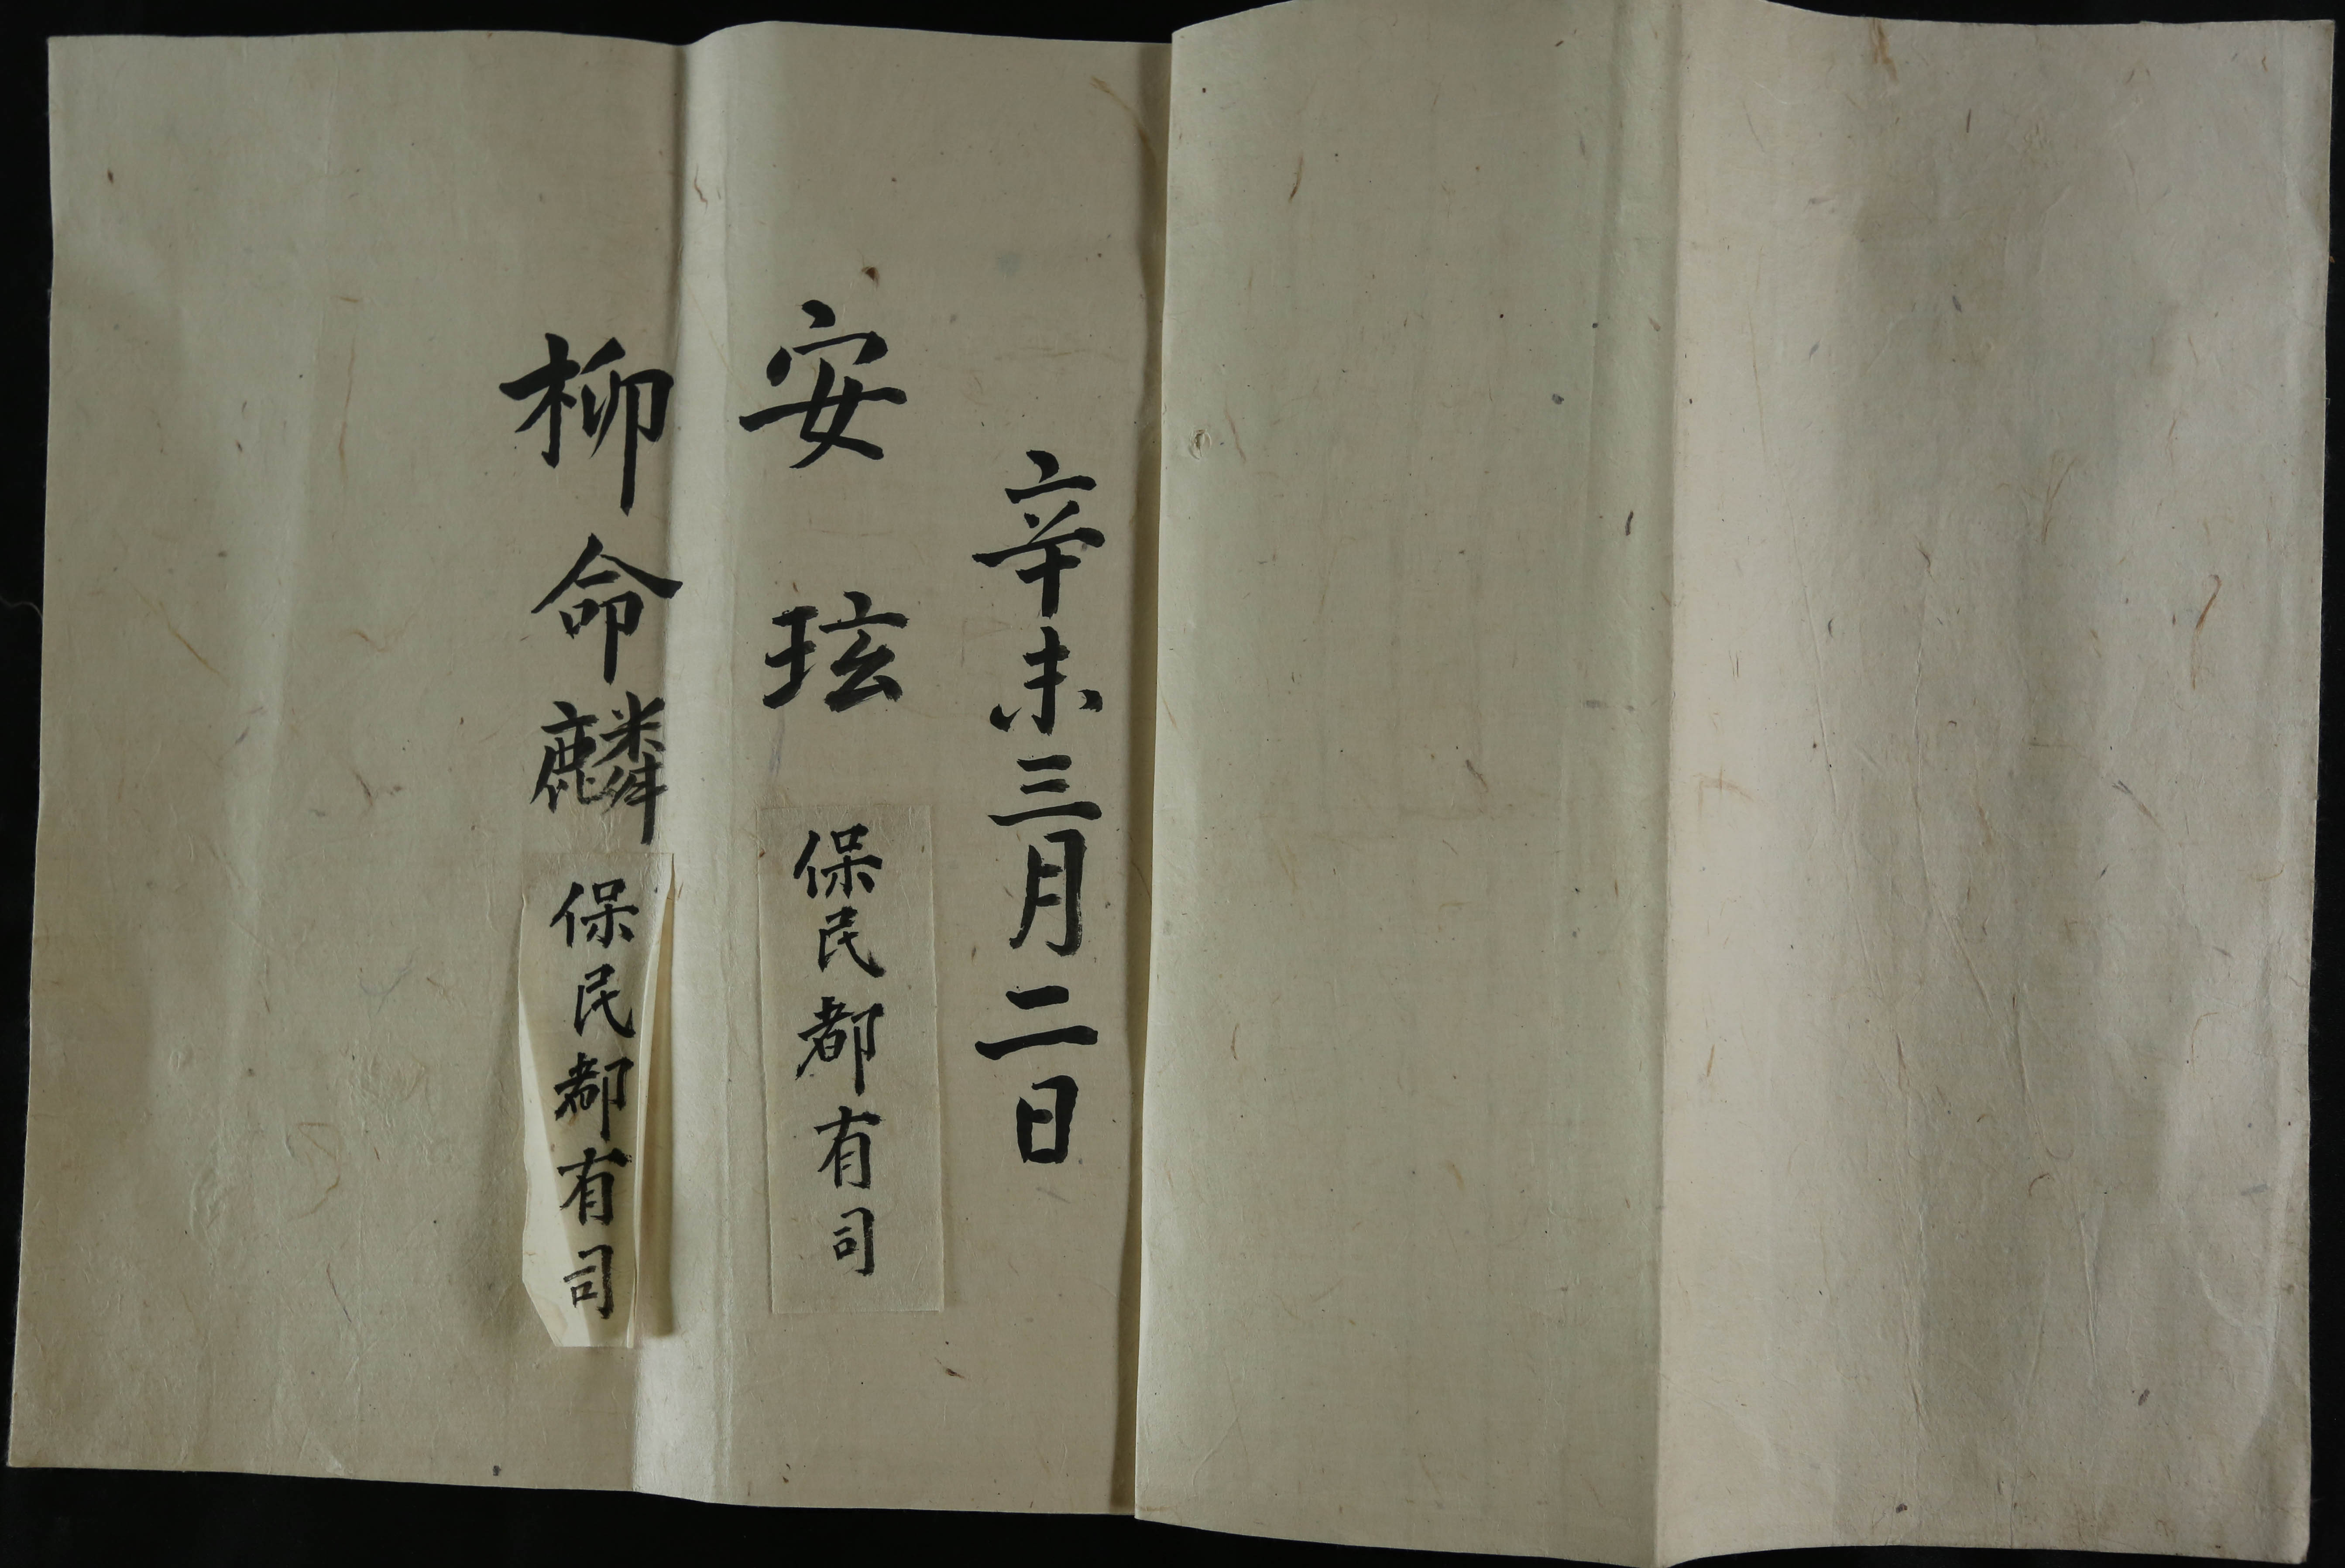 辛未三月二日
安玹 保民都有司
柳命麟 保民都有司